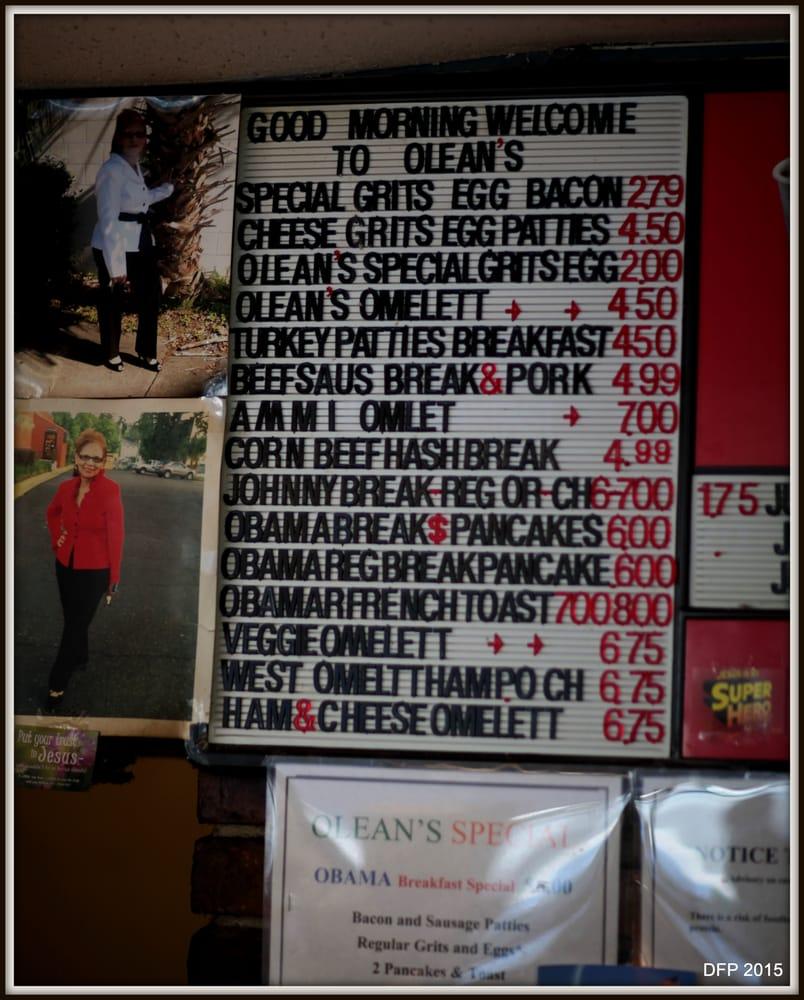 GOOD MORNING WELCOME
TO OLEAN'S
SPECIAL GRITS EGG BACON 2.79
CHEESE GRITS EGG PATTIES 4.50
OLEAN'S SPECIAL GRITS EGG 2.00
OLEAN'S OMELETT 4.50
TURKEY PATTIES BREAKFAST 4.50
BEEFSAUS BREAK & PORK 4.99
AMMI OMLET 7.00
CORN BEEF HASH BREAK 4.99
JOHNNY BREAK-REG OR-CH 6-7.00
OBAMA BREAK $ PANCAKES 6.00
OBAMA REG BREAK PANCAKE 6.00
OBAMAR FRENCH TOAST 7.00 8.00
VEGGIE OMELETT 6.75
WEST OMELTT HAM PO CH 6.75
HAM & CHEESE OMELETT 6.75
1.75 JU
J
J
SUPER
HERO
Put your trust
in Jesus-
OLEAN'S SPECIAL
OBAMA Breakfast Special
Bacon and Sausage Patties
Regular Grits and Eggs
2 Pancakes & Toast
NOTICE
There is a risk of
protein.
DFP 2015